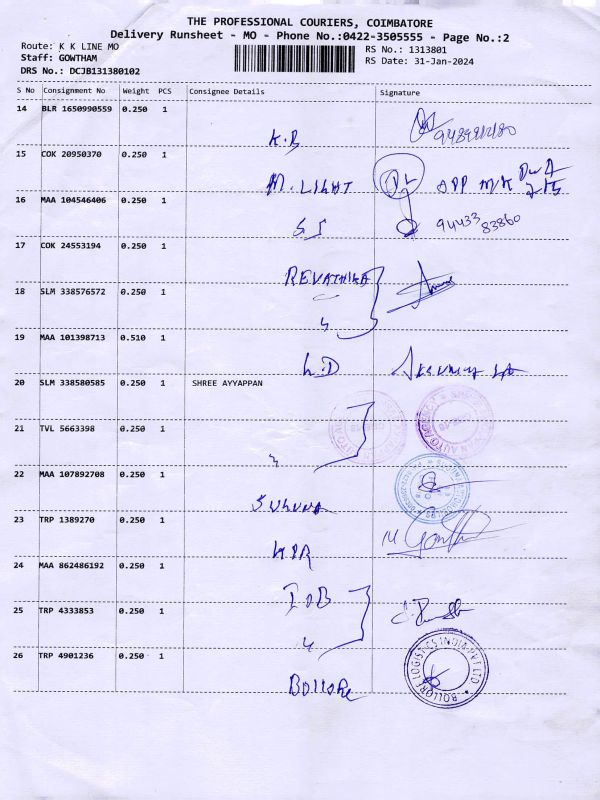 THE PROFESSIONAL COURIERS, COIMBATORE
Delivery Runsheet - MO - Phone No.:0422-3505555 - Page No.:2
Route: K K LINE MO
RS No.: 1313801
Staff: GOWTHAM
RS Date: 31-Jan-2024
DRS No.: DCJB131380102
S No Consignment No Weight PCS Consignee Details Signature
14 BLR 1650990559 0.250 1
K.B
15 COK 20950370 0.250 1
M. LIGHT OPP M/K
16 MAA 104546406 0.250 1
SI 94433 83860
17 COK 24553194 0.250 1
REVATHIKA
18 SLM 338576572 0.250 1
19 MAA 101398713 0.510 1
L.D
20 SLM 338580585 0.250 1 SHREE AYYAPPAN
21 TVL 5663398 0.250 1
22 MAA 107892708 0.250 1
SUGUNA
23 TRP 1389270 0.250 1
24 MAA 862486192 0.250 1
IOB
25 TRP 4333853 0.250 1
26 TRP 4901236 0.250 1
BOLLORE
BOLLORE LOGISTICS INDIA PVT LTD